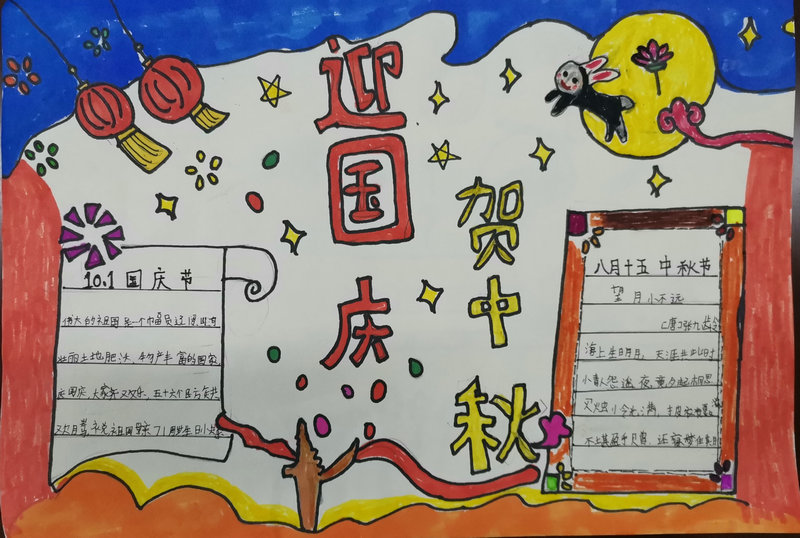 迎国庆
贺中秋
10.1 国庆节
伟大的祖国是一个幅员辽
壮丽土地肥沃、物产丰富的国家
国庆,大家齐欢乐,五十六个民
欢月, 祝祖国母亲71周岁生日快
八月十五中秋节
望月小不远
[唐]张九龄
海上生明月,天涯共此时
小青人怨遥夜,竟夕起相思
灭火虫小今光满,
不土甚盈手贝曾,还寝梦佳其月